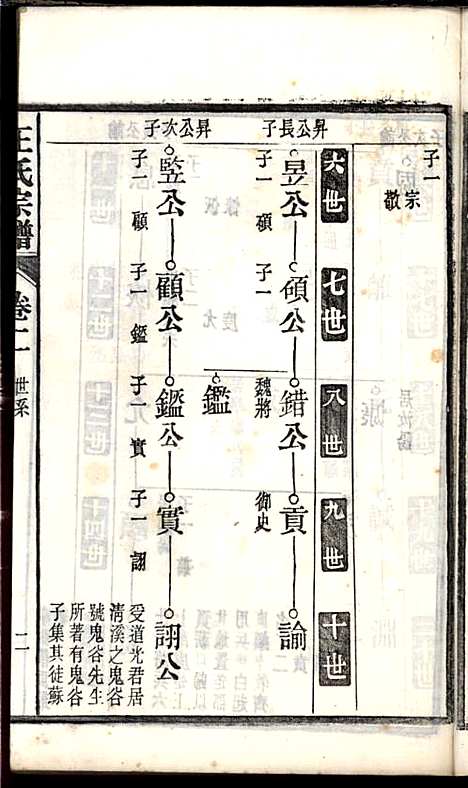 子一
宗敬
六世
七世
八世
九世
十世
昇公長子
昱公
子一碩
碩公
子一
錯公
魏將
貢
御史
諭
鑑
昇公次子
監公
子一顧
顧公
子一鑑
鑑公
子一實
實
子一詡
詡公
受道光君居
清溪之鬼谷
號鬼谷先生
所著有鬼谷
子集其徒蘇
王氏宗譜
卷二
世系
二